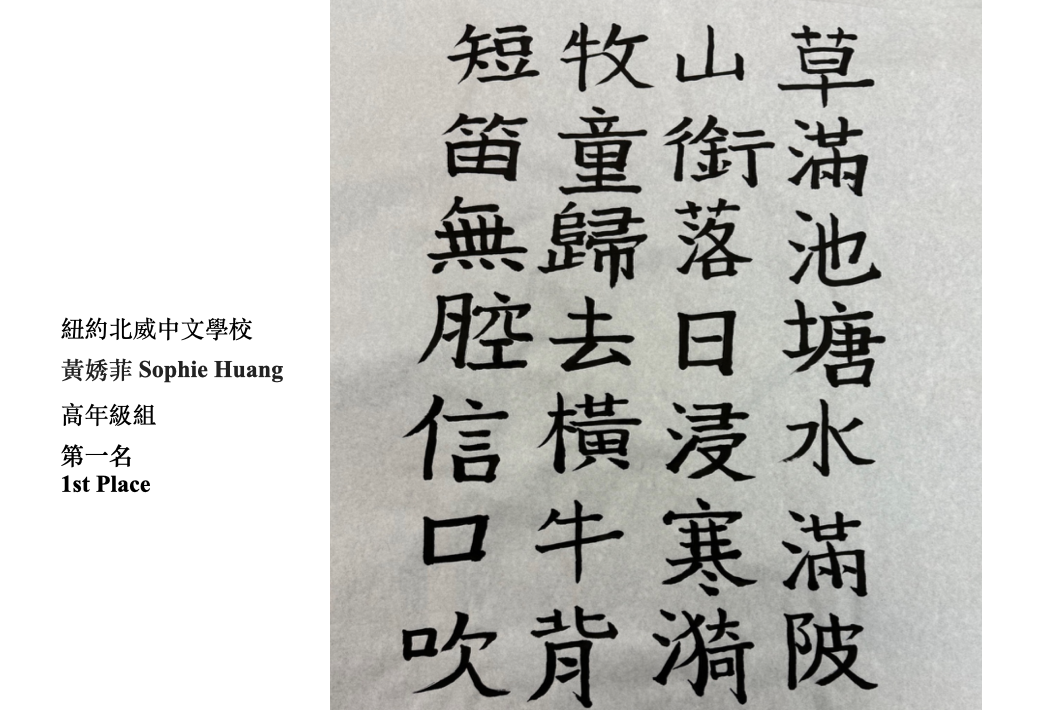 紐約北威中文學校
黃嫎菲 Sophie Huang
高年級組
第一名
1st Place
草滿池塘水滿陂
山銜落日浸寒漪
牧童歸去橫牛背
短笛無腔信口吹